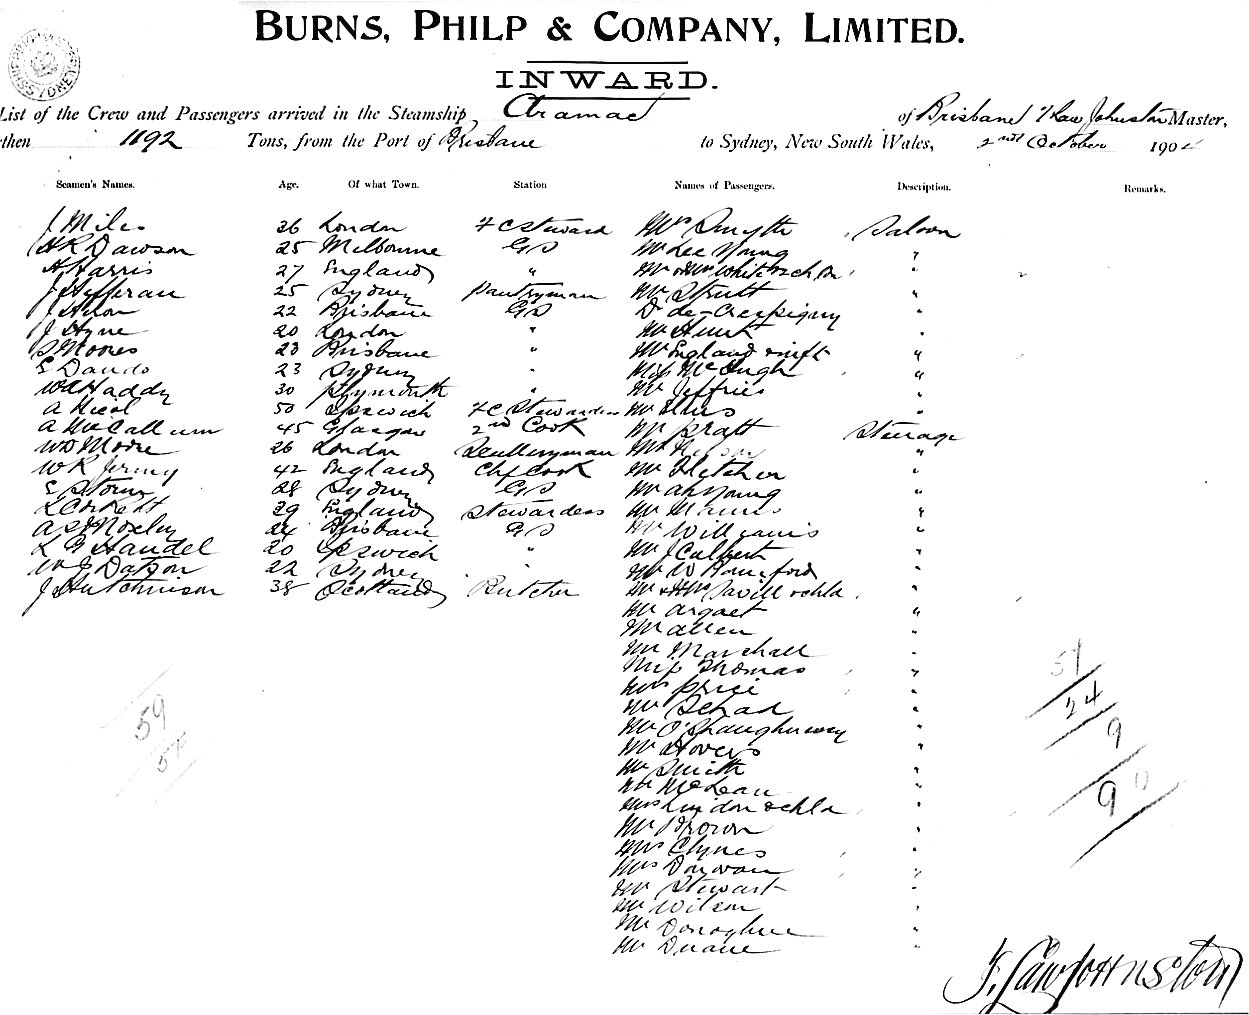 BURNS, PHILP & COMPANY, LIMITED.
INWARD.
List of the Crew and Passengers arrived in the Steamship Aramac of Brisbane F Law Johnston Master,
then 1192 Tons, from the Port of Brisbane to Sydney, New South Wales, 2nd October 190
Seamen's Names. Age. Of what Town. Station Names of Passengers. Description. Remarks.
J Miles 26 London F C Steward Mr Smyth Saloon
H R Dawson 25 Melbourne GS Mr Lee Young "
A Harris 27 England " Mr & Mrs
J Hefferan 25 Sydney Pantryman Mr Strutt "
J 22 Brisbane GS Dr de-Crespigny "
J Hyne 20 London " Mr Hunt "
S Moores 23 Brisbane " Mr England "
E Dando 23 Sydney " Miss McHugh "
W A Haddy 30 Plymouth " Mr Jeffries "
A Nicol 50 Ipswich F C Stewardess Mr "
A McCallum 45 Glasgow 2nd Cook Mr Pratt Steerage
W D Moore 26 London Sculleryman Mr "
W R Jermy 42 England Chf Cook Mr Fletcher "
E Storm 28 Sydney GS Mr Ah Young "
L Corbett 29 England Stewardess Mr "
A S Moxley 24 Brisbane GS Mr Williams "
L G Handel 20 Ipswich " Mr J Culbert "
W J Datson 22 Sydney " Mr W "
J Hutchinson 38 Scotland Butcher Mr & Mrs Savill & chld "
Mr Argaet "
Mr Allen "
Mr Marshall "
Miss Thomas "
Mrs Price "
Mr Schad "
Mr O'Shaughnessy "
Mr Hovers "
Mr Smith "
Mr McLean "
Mrs Lindon & chld "
Mr Brown "
Mrs Clynes "
Mrs Donovan "
Mr Stewart "
Mr Wilson "
Mr Donoghue "
Mr Duane "
59
57
24
9
90
F. Law Johnston